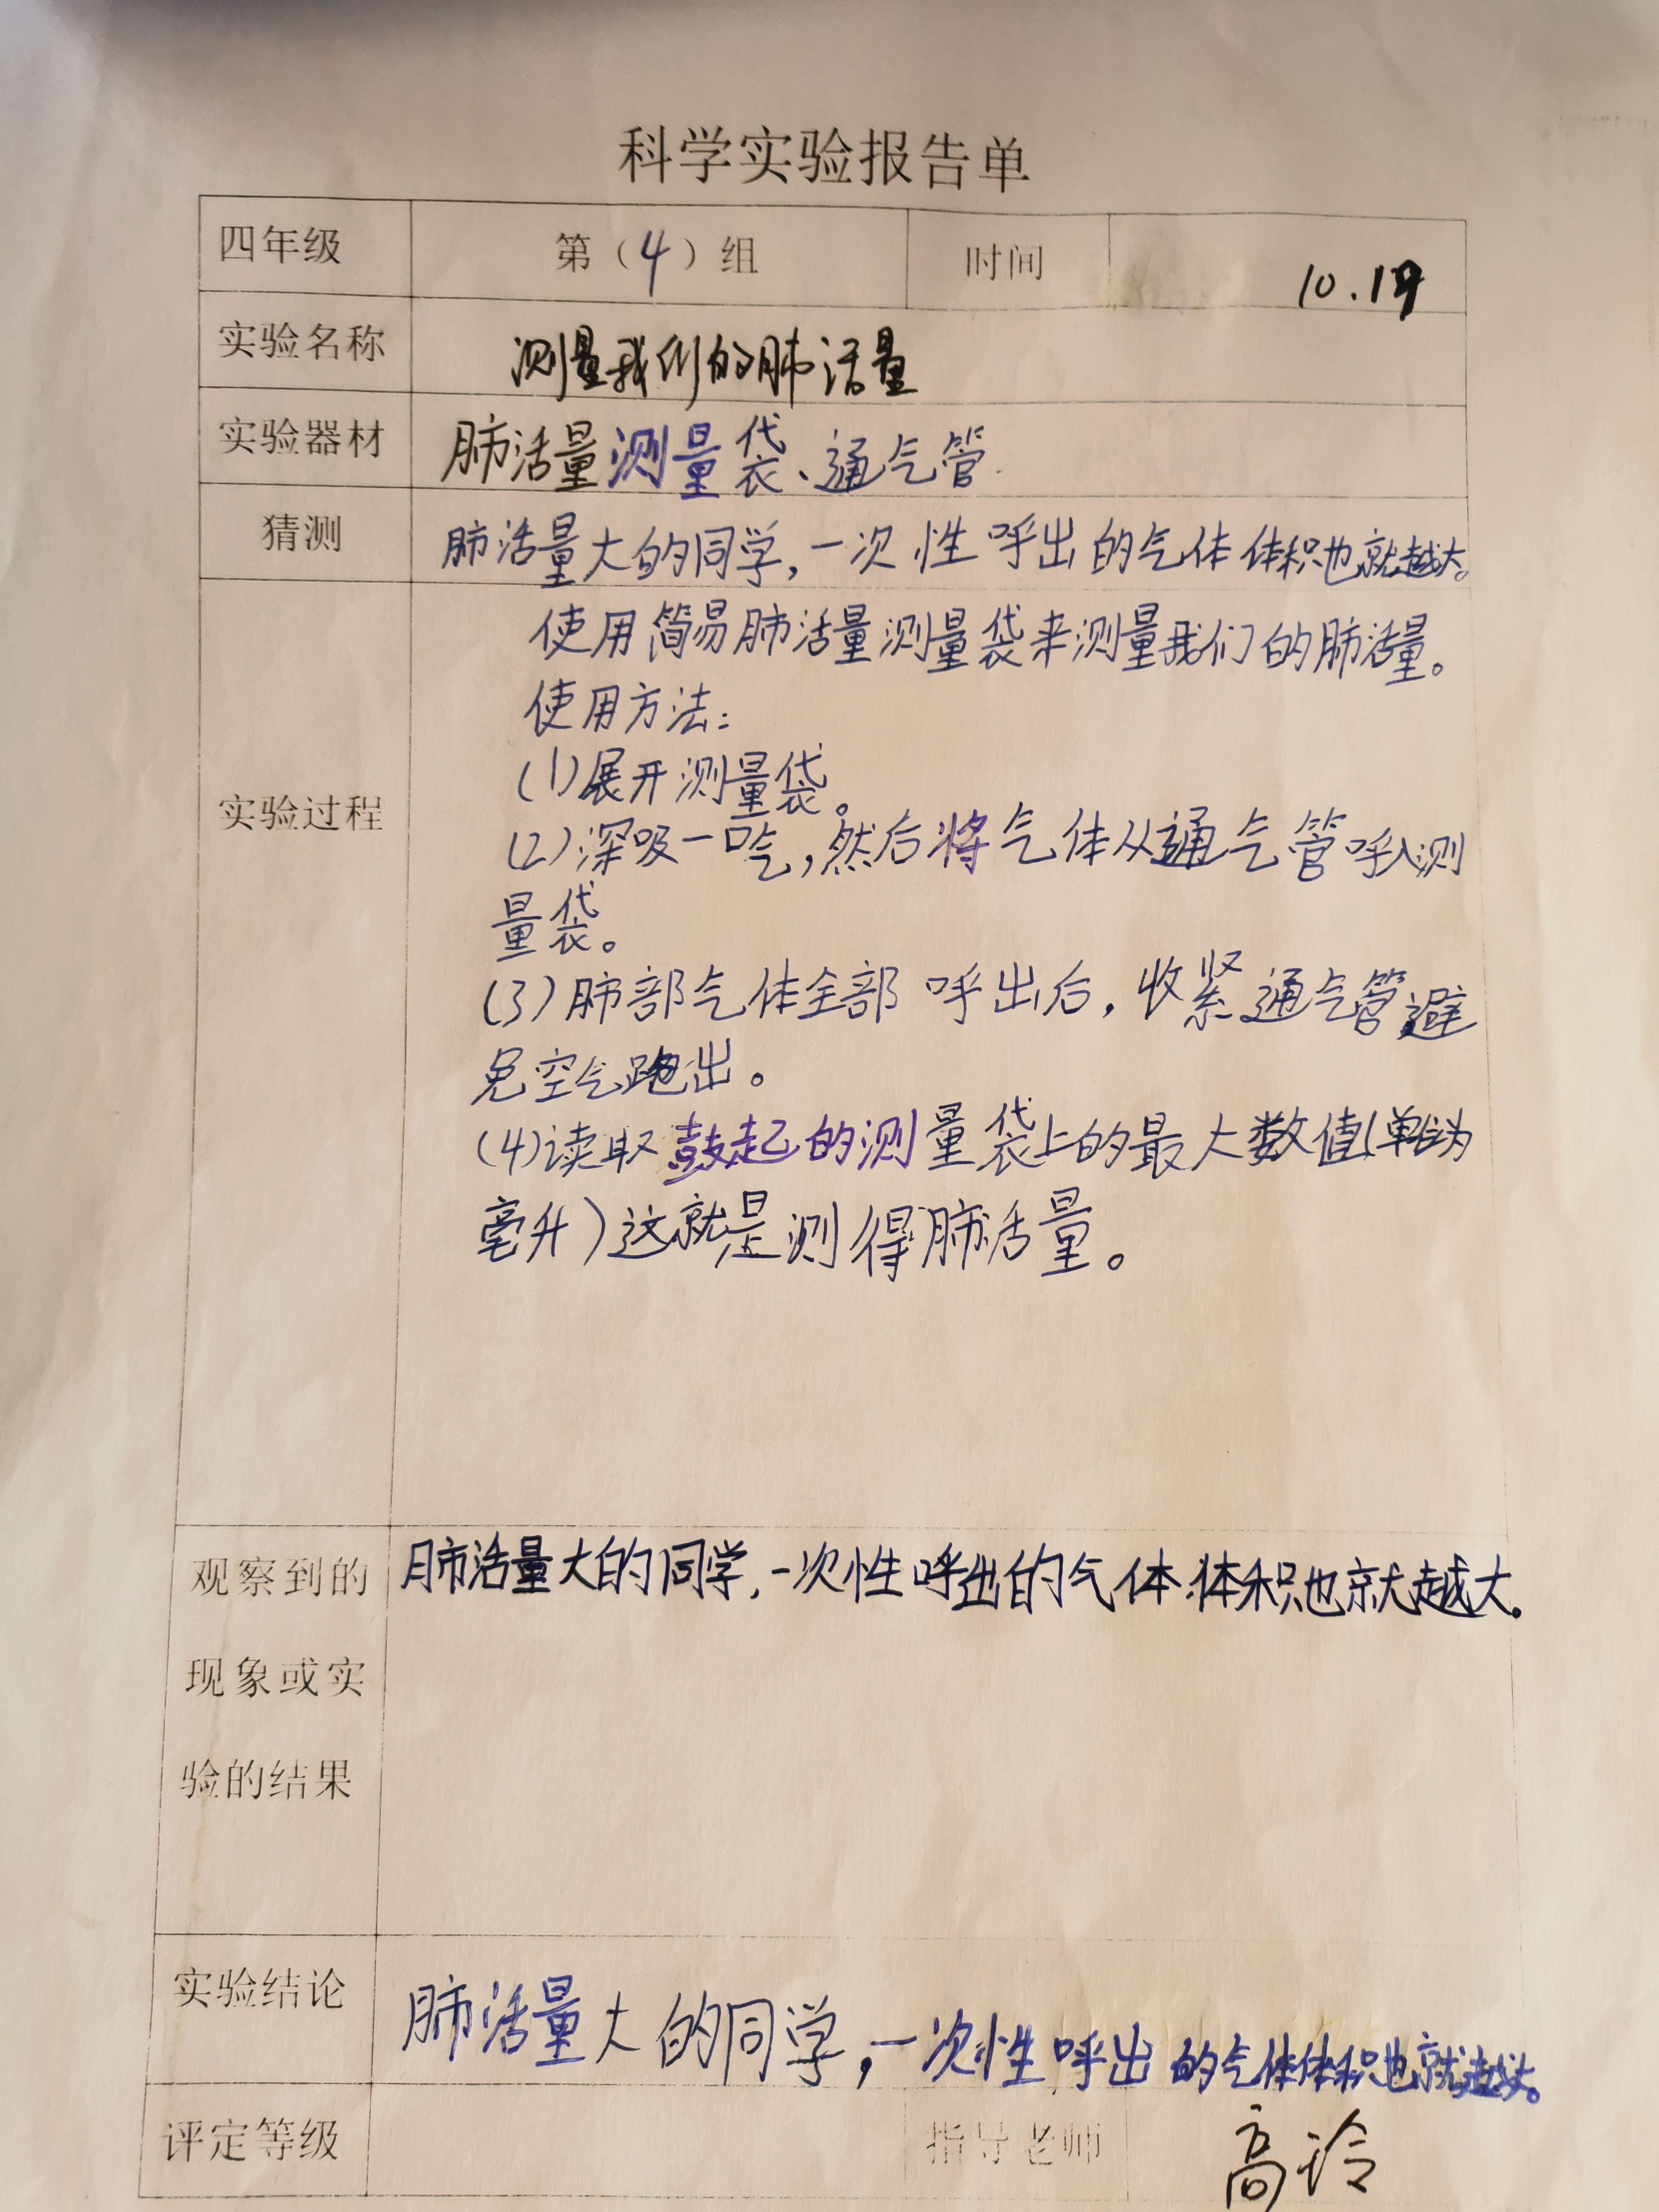 科学实验报告单
四年级 第（4）组 时间 10.19
实验名称 测量我们的肺活量
实验器材 肺活量测量袋、通气管
猜测 肺活量大的同学，一次性呼出的气体体积也就越大。
使用简易肺活量测量袋来测量我们的肺活量。
使用方法：
(1)展开测量袋。
实验过程
(2)深吸一口气，然后将气体从通气管呼入测
量袋。
(3)肺部气体全部呼出后，收紧通气管避
免空气跑出。
(4)读取鼓起的测量袋上的最大数值(单位为
毫升)这就是测得肺活量。
观察到的 肺活量大的同学，一次性呼出的气体体积也就越大。
现象或实
验的结果
实验结论 肺活量大的同学，一次性呼出的气体体积也就越大。
评定等级 指导老师 高